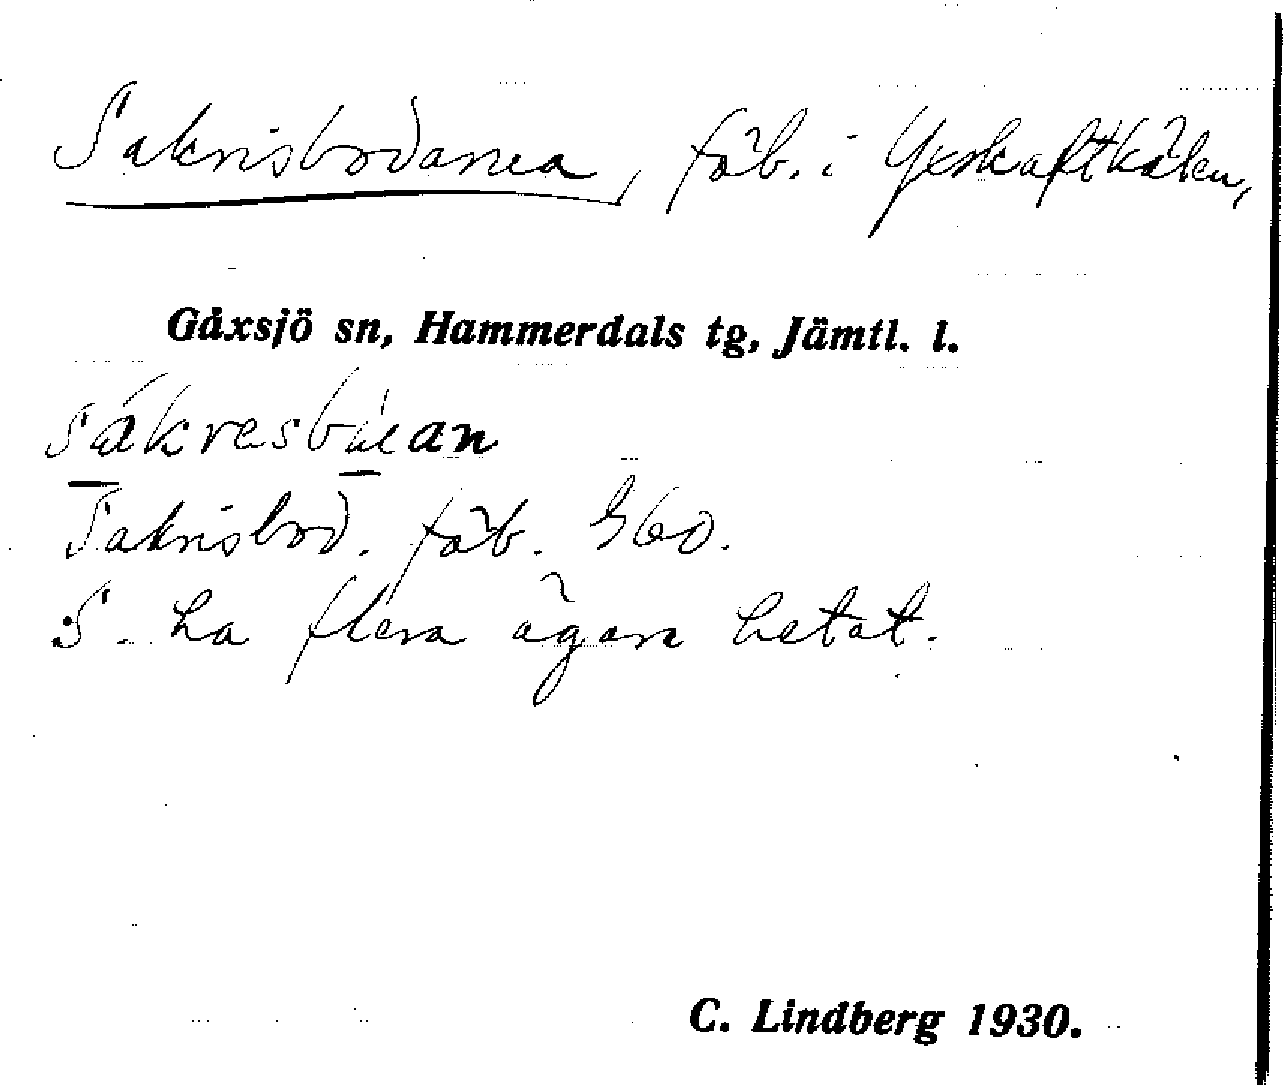 Sakrisbodarna, fäb. i Yxskaftkälen,
Gåxsjö sn, Hammerdals tg, Jämtl. l.
Sakrisbod. fäb. G60.
S. ha flera ägare hetat.
C. Lindberg 1930.